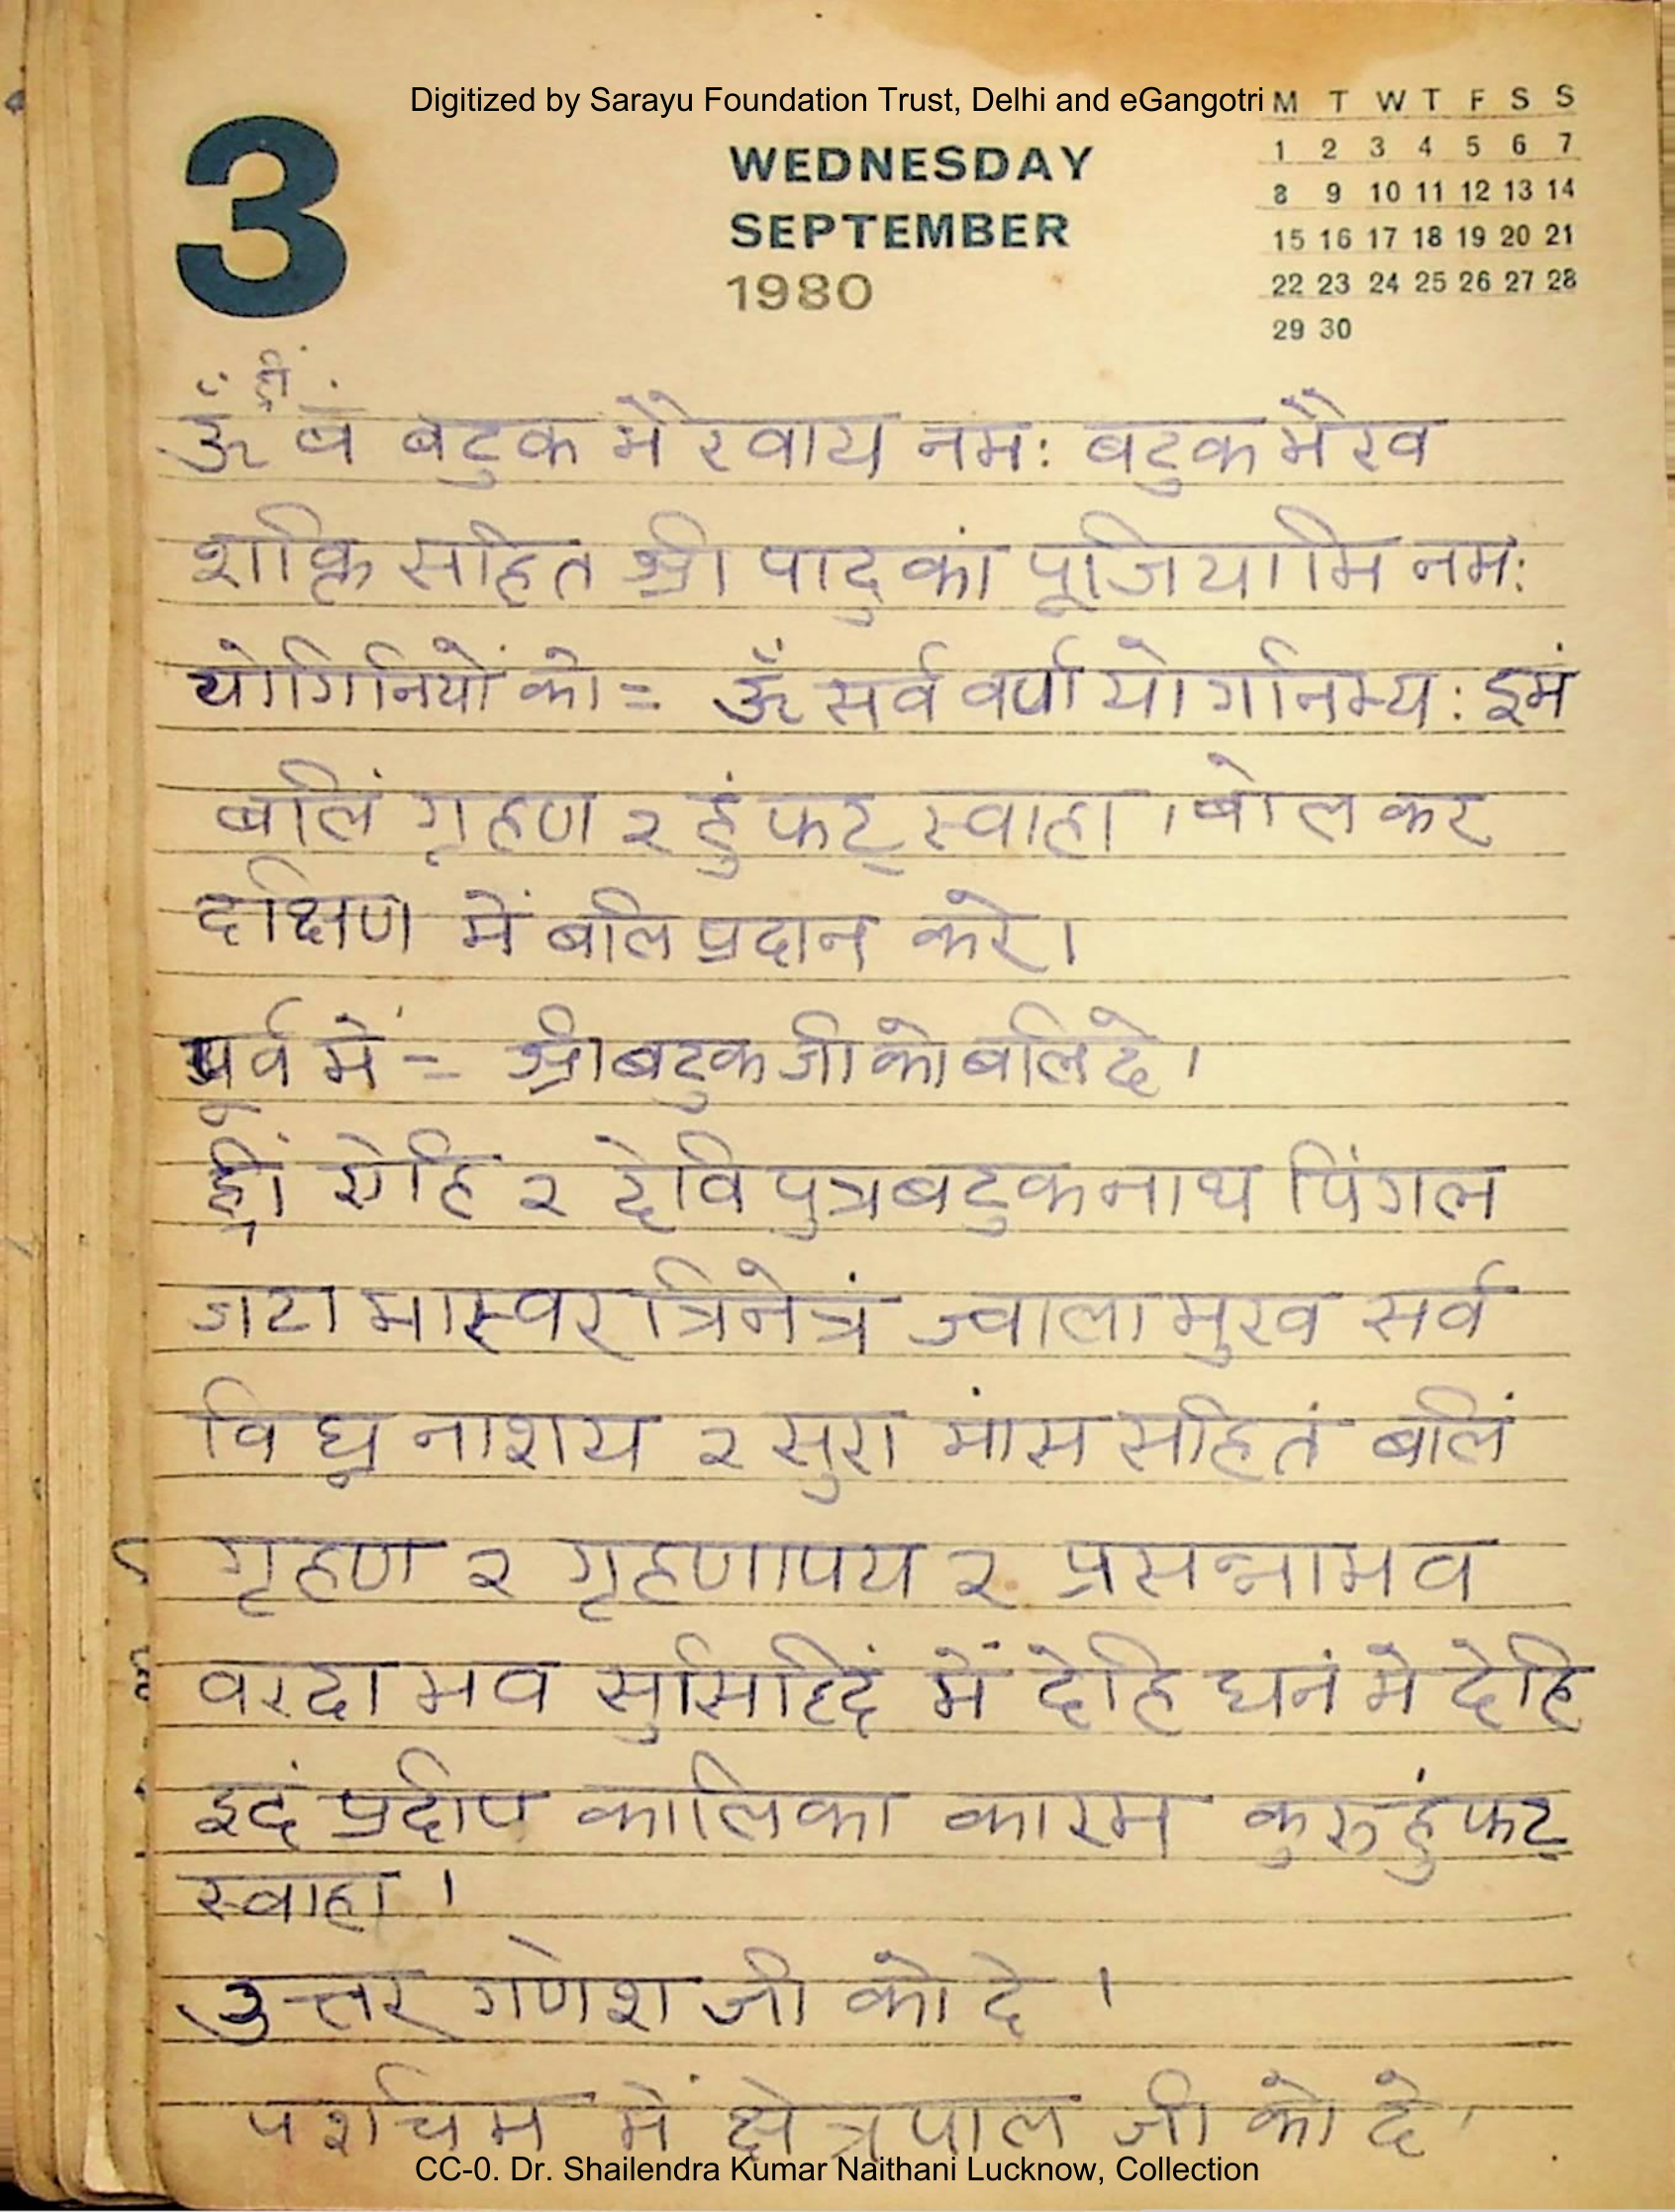 Digitized by Sarayu Foundation Trust, Delhi and eGangotri
3
WEDNESDAY
SEPTEMBER
1980
M T W T F S S
1 2 3 4 5 6 7
8 9 10 11 12 13 14
15 16 17 18 19 20 21
22 23 24 25 26 27 28
29 30
ह्रीं
ॐ बं बटुक भैरवाय नमः बटुक भैरव
शक्ति सहित श्री पादुकां पूजियामि नमः
योगिनियों को = ॐ सर्व वर्ण योगिनभ्यः इमं
बलिं गृहण २ हुं फट् स्वाहा । बोल कर
दक्षिण में बलि प्रदान करे।
पूर्व में = श्री बटुक जी को बलि दे।
ह्रीं एहि २ देवि पुत्र बटुक नाथ पिंगल
जटा भास्वर त्रिनेत्रं ज्वाला मुख सर्व
विघ्न नाशय २ सुरा मांस सहितं बलिं
गृहण २ गृहणापय २ प्रसन्नाभव
वरदा भव सुसिद्धिं में देहि धनं मे देहि
इदं प्रदीप कालिका कारम कुरु हुं फट्
स्वाहा ।
उत्तर गणेश जी को दे ।
पश्चिम में क्षेत्रपाल जी को दे ।
CC-0. Dr. Shailendra Kumar Naithani Lucknow, Collection